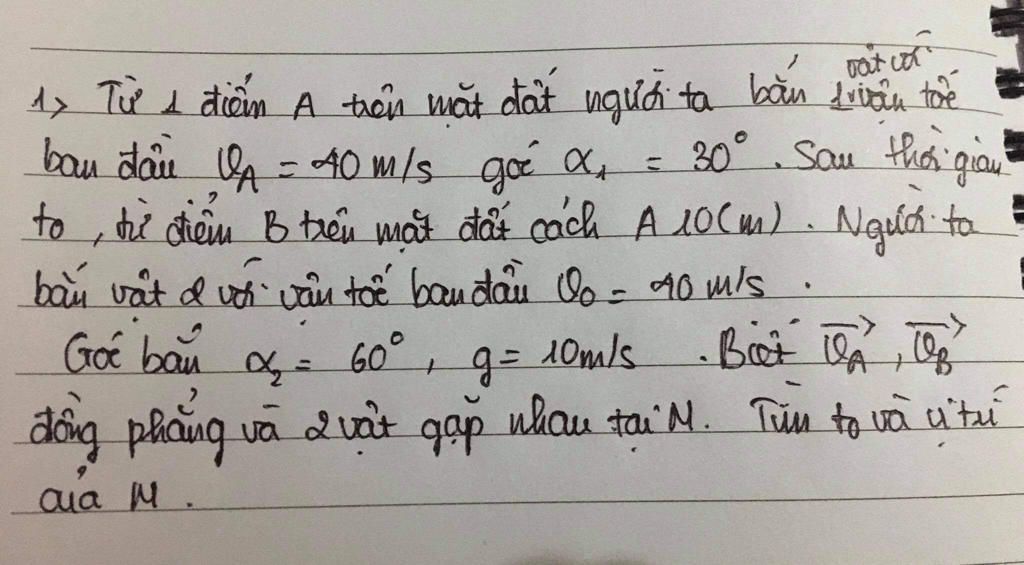 vật với
1> Từ 1 điểm A trên mặt đất người ta bắn 1 vận tốc
ban đầu V_A = 40 m/s góc α₁ = 30°. Sau thời gian
to, từ điểm B trên mặt đất cách A 10(m). Người ta
bắn vật 2 với vận tốc ban đầu V₀ = 40 m/s.
Góc bắn α₂ = 60°, g = 10m/s. Biết V_A→, V_B→
đồng phẳng và 2 vật gặp nhau tại M. Tìm to và vị trí
của M.